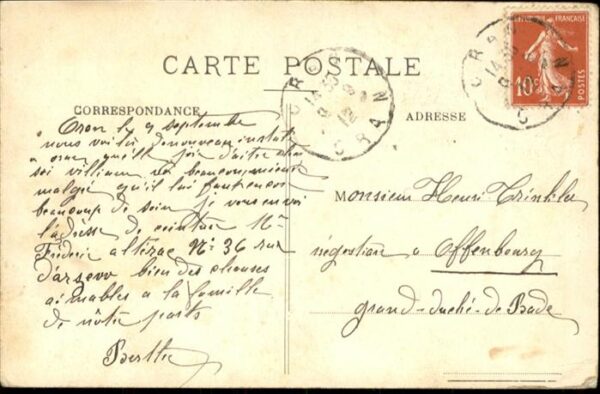 CARTE POSTALE
CORRESPONDANCE
ADRESSE
FRANÇAISE
POSTES
10c
ORAN
14 30
9 - 9
12
ORAN
Oran le 9 septembre
nous voila de nouveau instalé
a oran quelle joie d'aitre
soi William va beaucoup mieux
malgré qu'il lui faut encore
beaucoup de soin je vous envoi
l'adresse de ceinture Mr
Fréderic altérac No 36 rue
d'arzew bien des choses
aimables a la famille
de nôtre parts
Berthe
Monsieur Henri Trinkler
négostian a Offenbourg
grand-duché-de Bade